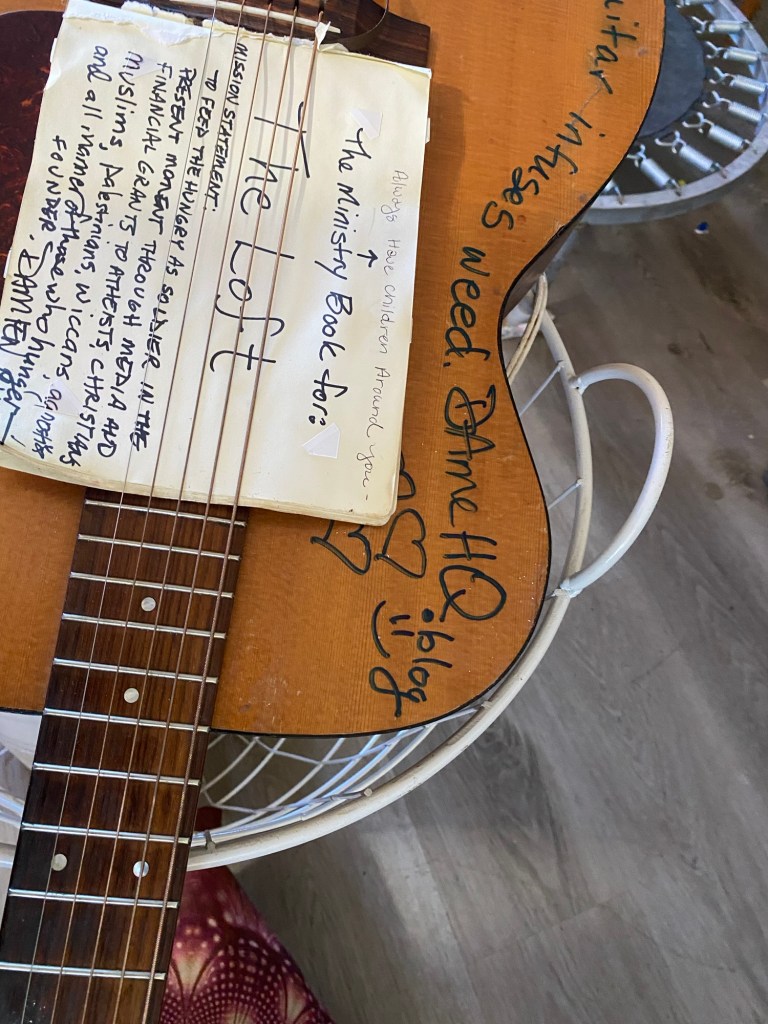 Always Have Children Around you -
The Ministry Book for:
The Loft
MISSION STATEMENT:
TO FEED THE HUNGRY AS SOLDIER IN THE
PRESENT MOMENT THROUGH MEDIA AND
FINANCIAL GRANTS TO ATHEISTS, CHRISTIANS
MUSLIMS, PALESTINIANS, WICCANS, AGNOSTICS
and all manner of those who hunger -
FOUNDER:
uitar infuses weed. DAmeHQ
.blog